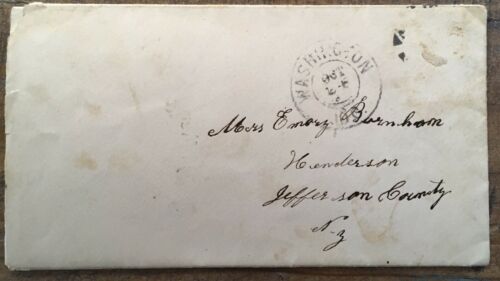 WASHINGTON
OCT
Mrs Emory Burnham
Henderson
Jefferson County
N.y